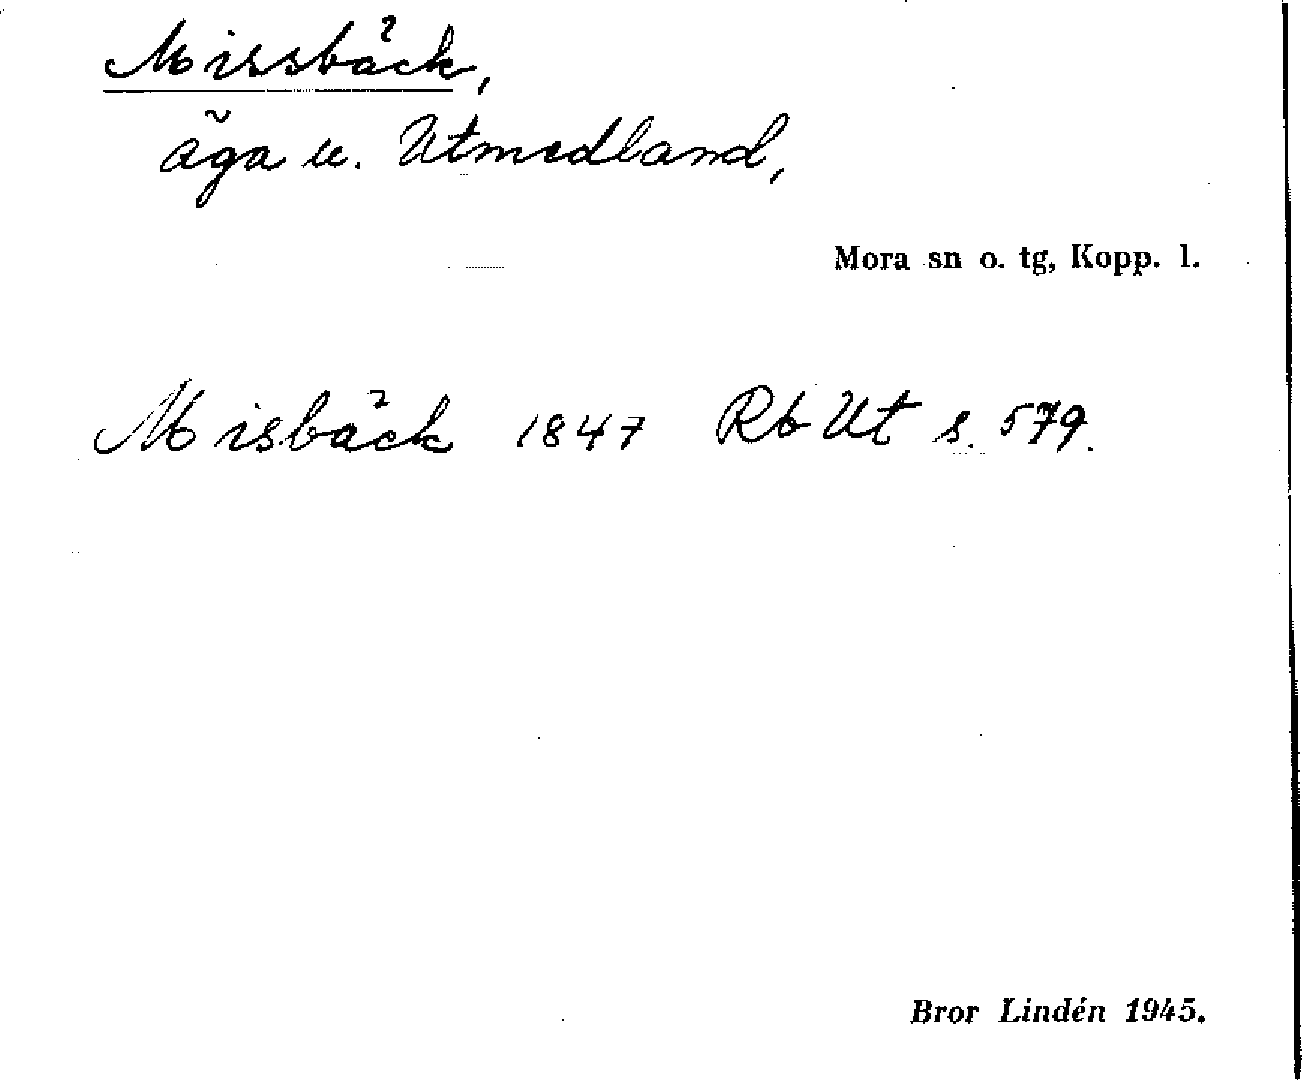 Missbäck,
äga u. Utmedland,
Mora sn o. tg, Kopp. l.
Misbäck 1847 Rb Ut s. 579.
Bror Lindén 1945.